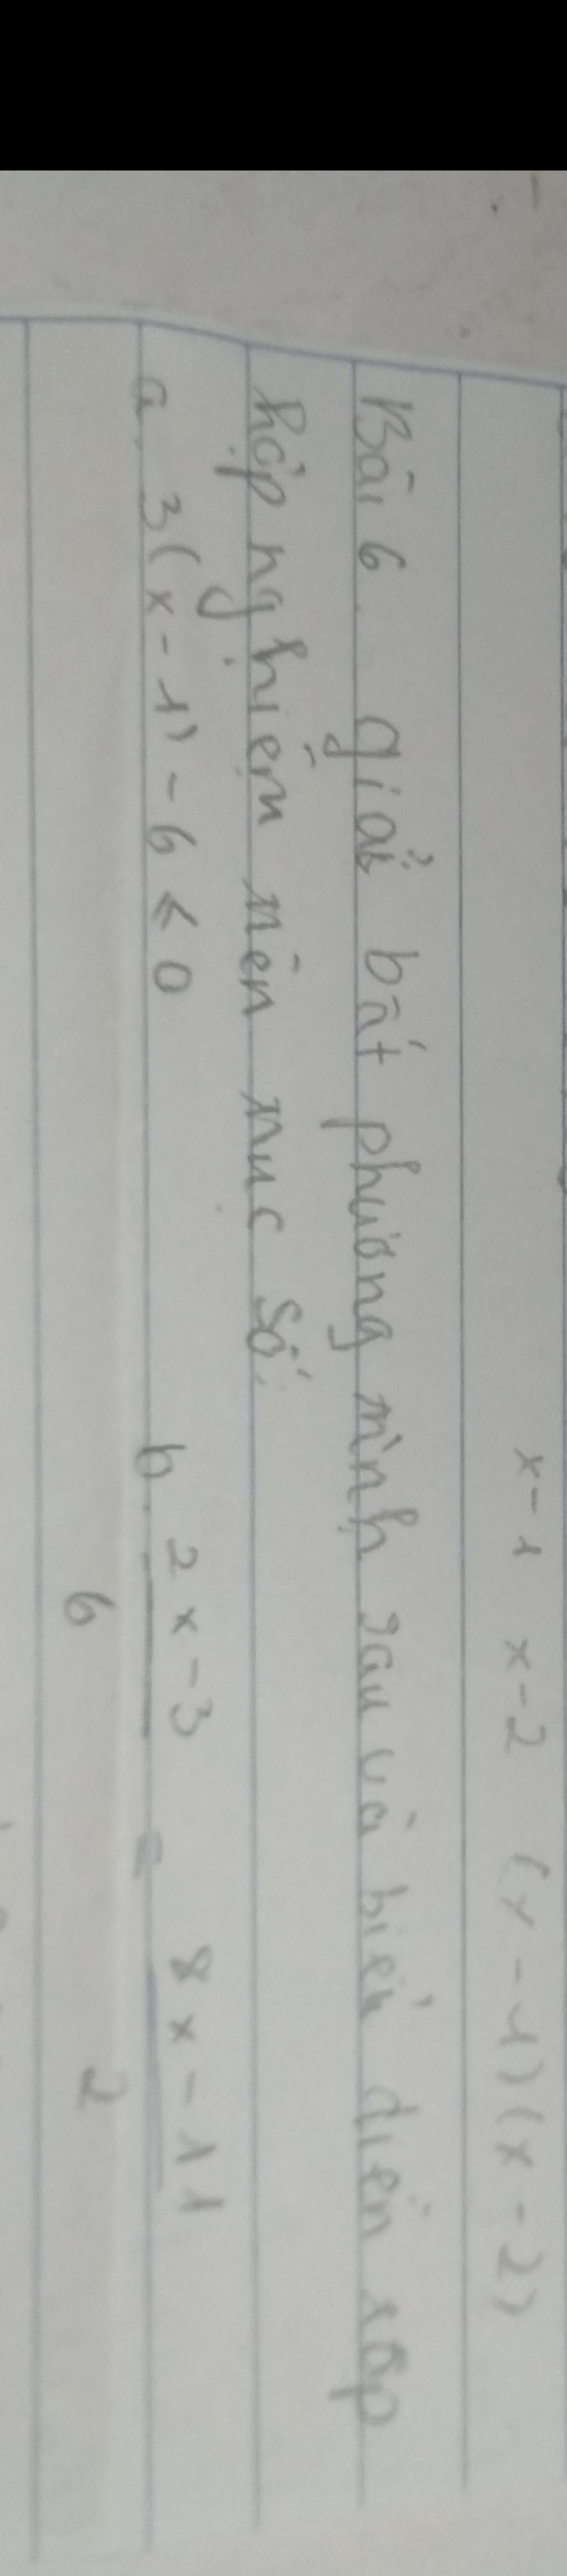 x-1 x-2 (x-1)(x-2)
Bài 6. giải bất phương trình sau và biểu diễn tập
hợp nghiệm trên trục số:
a. 3(x-1)-6<0 b. 2x-3 = 8x-11
6 2